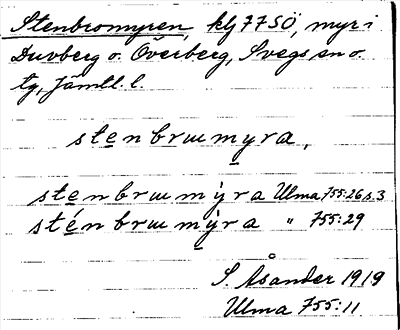 Stenbromyren, klj 77 SÖ, myr i
Duvberg o. Överberg, Svegs sn o.
tg, Jämtl. l.
stenbrɯmyra,
stenbrɯmýra Ulma 755:26 s. 3
sténbrɯmỳra " 755:29
S. Åsander 1919
Ulma 755:11.